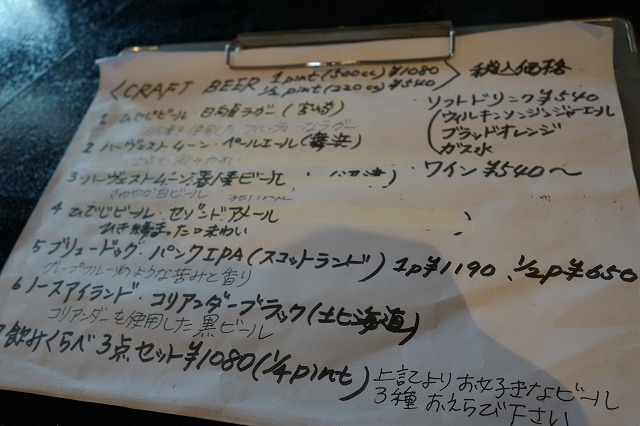 〈CRAFT BEER 1pint(500cc)¥1080 〉 税込価格
1/2pint(220cc)¥540
1 ひでじビール・日向夏ラガー(宮崎)
日向夏を使用したフルーティーなラガー
2 ハーヴェストムーン・ペールエール(舞浜)
3 ハーヴェストムーン
さわやか白ビール
4 ひでじビール・セゾンドアメール
ひき締まった口味わい
5 ブリュードッグ・パンクIPA(スコットランド) 1p¥1190、1/2p¥650
グレープフルーツのような苦みと香り
6 ノースアイランド・コリアンダーブラック(北海道)
コリアンダーを使用した黒ビール
飲みくらべ3点セット¥1080(1/4pint)
上記よりお好きなビール
3種おえらび下さい
ソフトドリンク¥540
(ウィルキンソンジンジャーエール
ブラッドオレンジ
ガス水
ワイン¥540〜